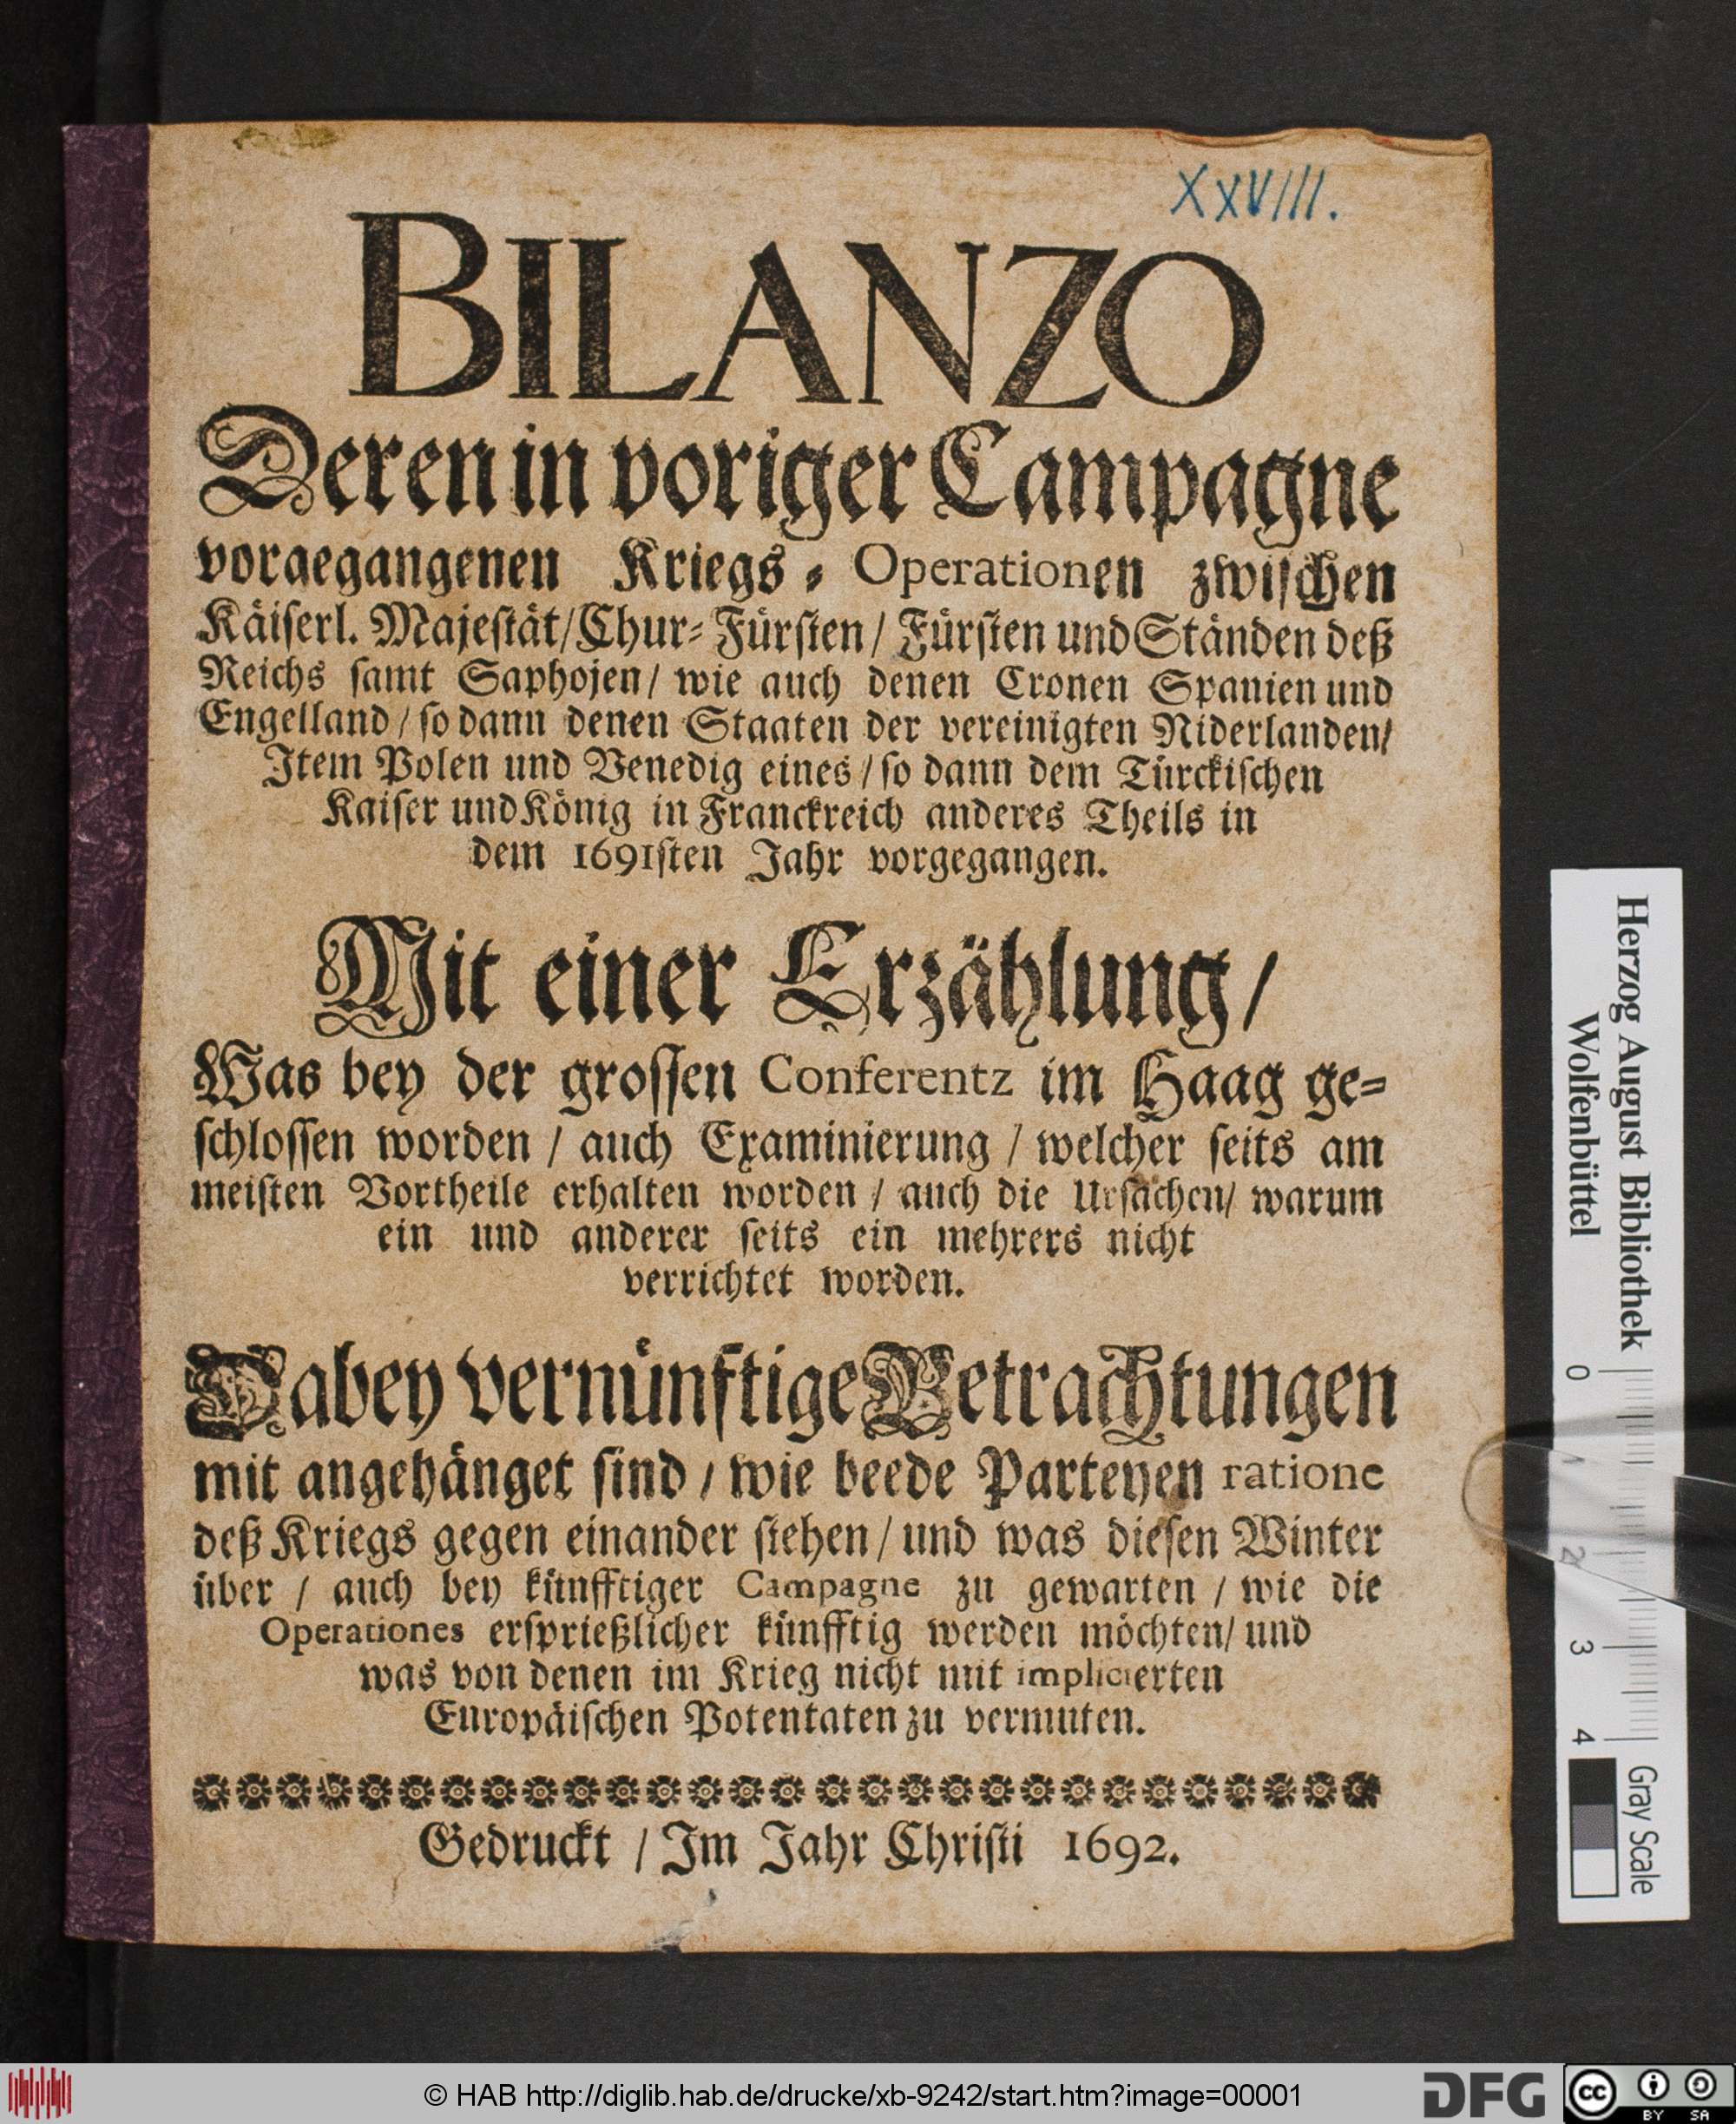 XXVIII.
BILANZO
Deren in voriger Campagne
vorgegangenen Kriegs-Operationen zwischen
Käiserl. Majestät/Chur-Fürsten/Fürsten und Ständen deß
Reichs samt Saphojen/ wie auch denen Cronen Spanien und
Engelland/so dann denen Staaten der vereinigten Niderlanden/
Item Polen und Venedig eines/so dann dem Türckischen
Kaiser und König in Franckreich anderes Theils in
dem 1691sten Jahr vorgegangen.
Mit einer Erzählung/
Was bey der grossen Conferentz im Haag ge-
schlossen worden / auch Examinierung / welcher seits am
meisten Vortheile erhalten worden / auch die Ursachen/ warum
ein und anderer seits ein mehrers nicht
verrichtet worden.
Dabey vernünftige Betrachtungen
mit angehänget sind / wie beede Parteyen ratione
deß Kriegs gegen einander stehen/ und was diesen Winter
über / auch bey künfftiger Campagne zu gewarten / wie die
Operationes ersprießlicher künfftig werden möchten/ und
was von denen im Krieg nicht mit implicierten
Europäischen Potentaten zu vermuten.
Gedruckt / Im Jahr Christi 1692.
Herzog August Bibliothek
Wolfenbüttel
0 1 2 3 4
Gray Scale
© HAB http://diglib.hab.de/drucke/xb-9242/start.htm?image=00001
DFG
cc BY SA